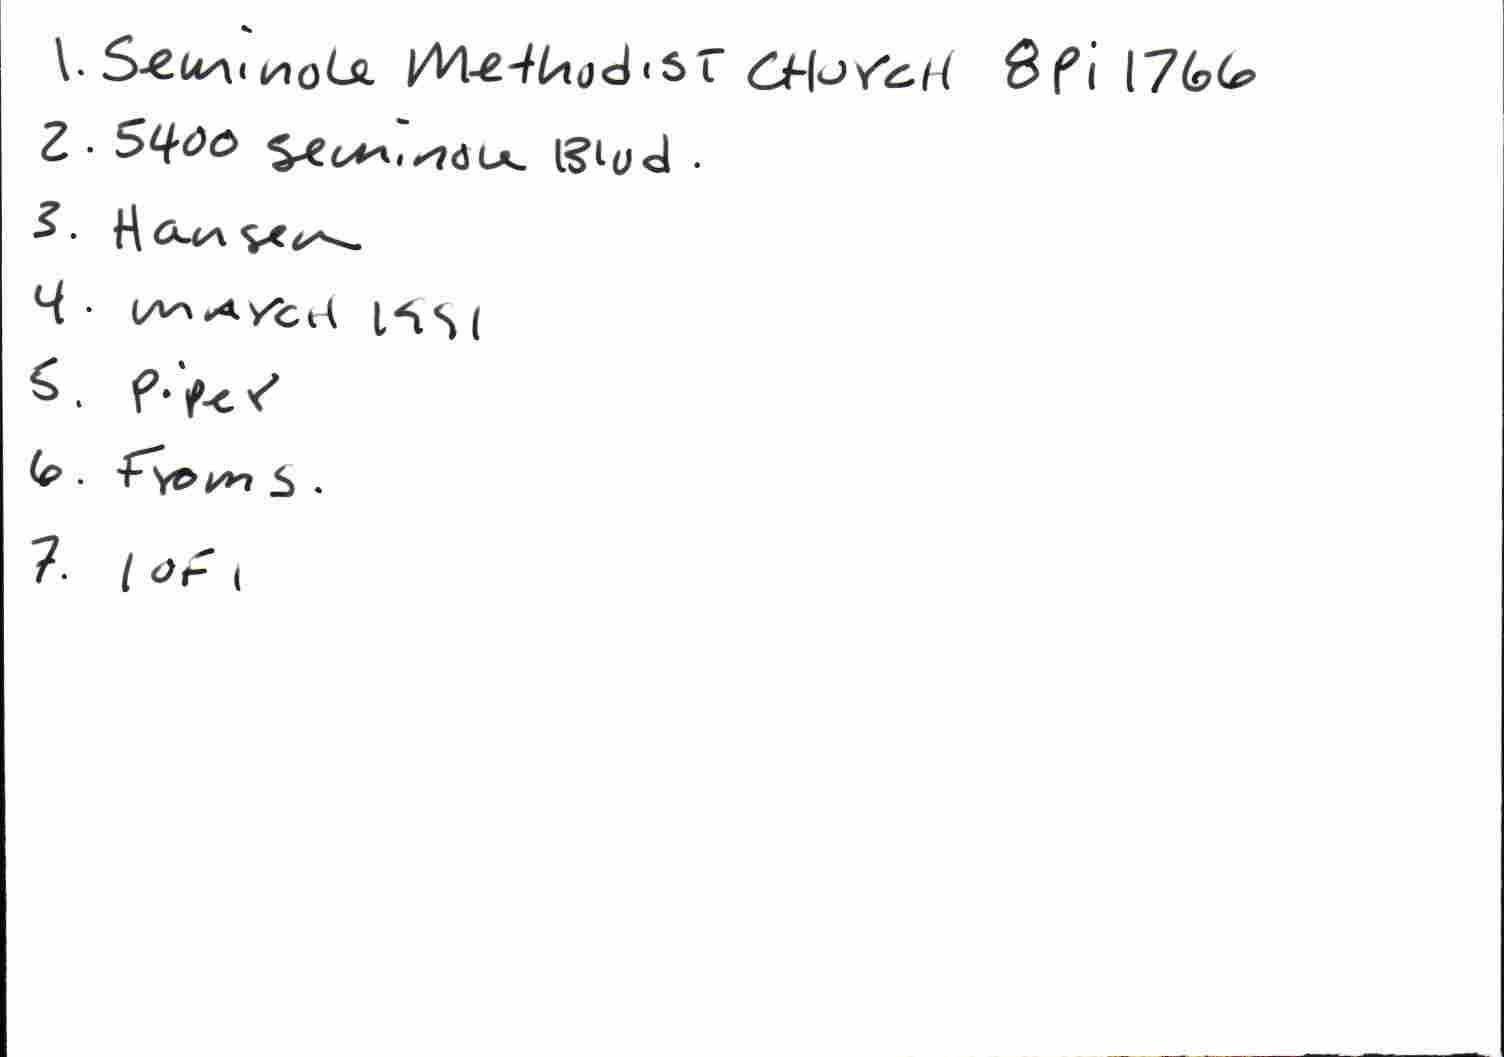 1. Seminole Methodist CHURCH 8Pi1766
2. 5400 Seminole Blvd.
3. Hansen
4. MARCH 1991
5. Piper
6. From S.
7. 1 OF 1